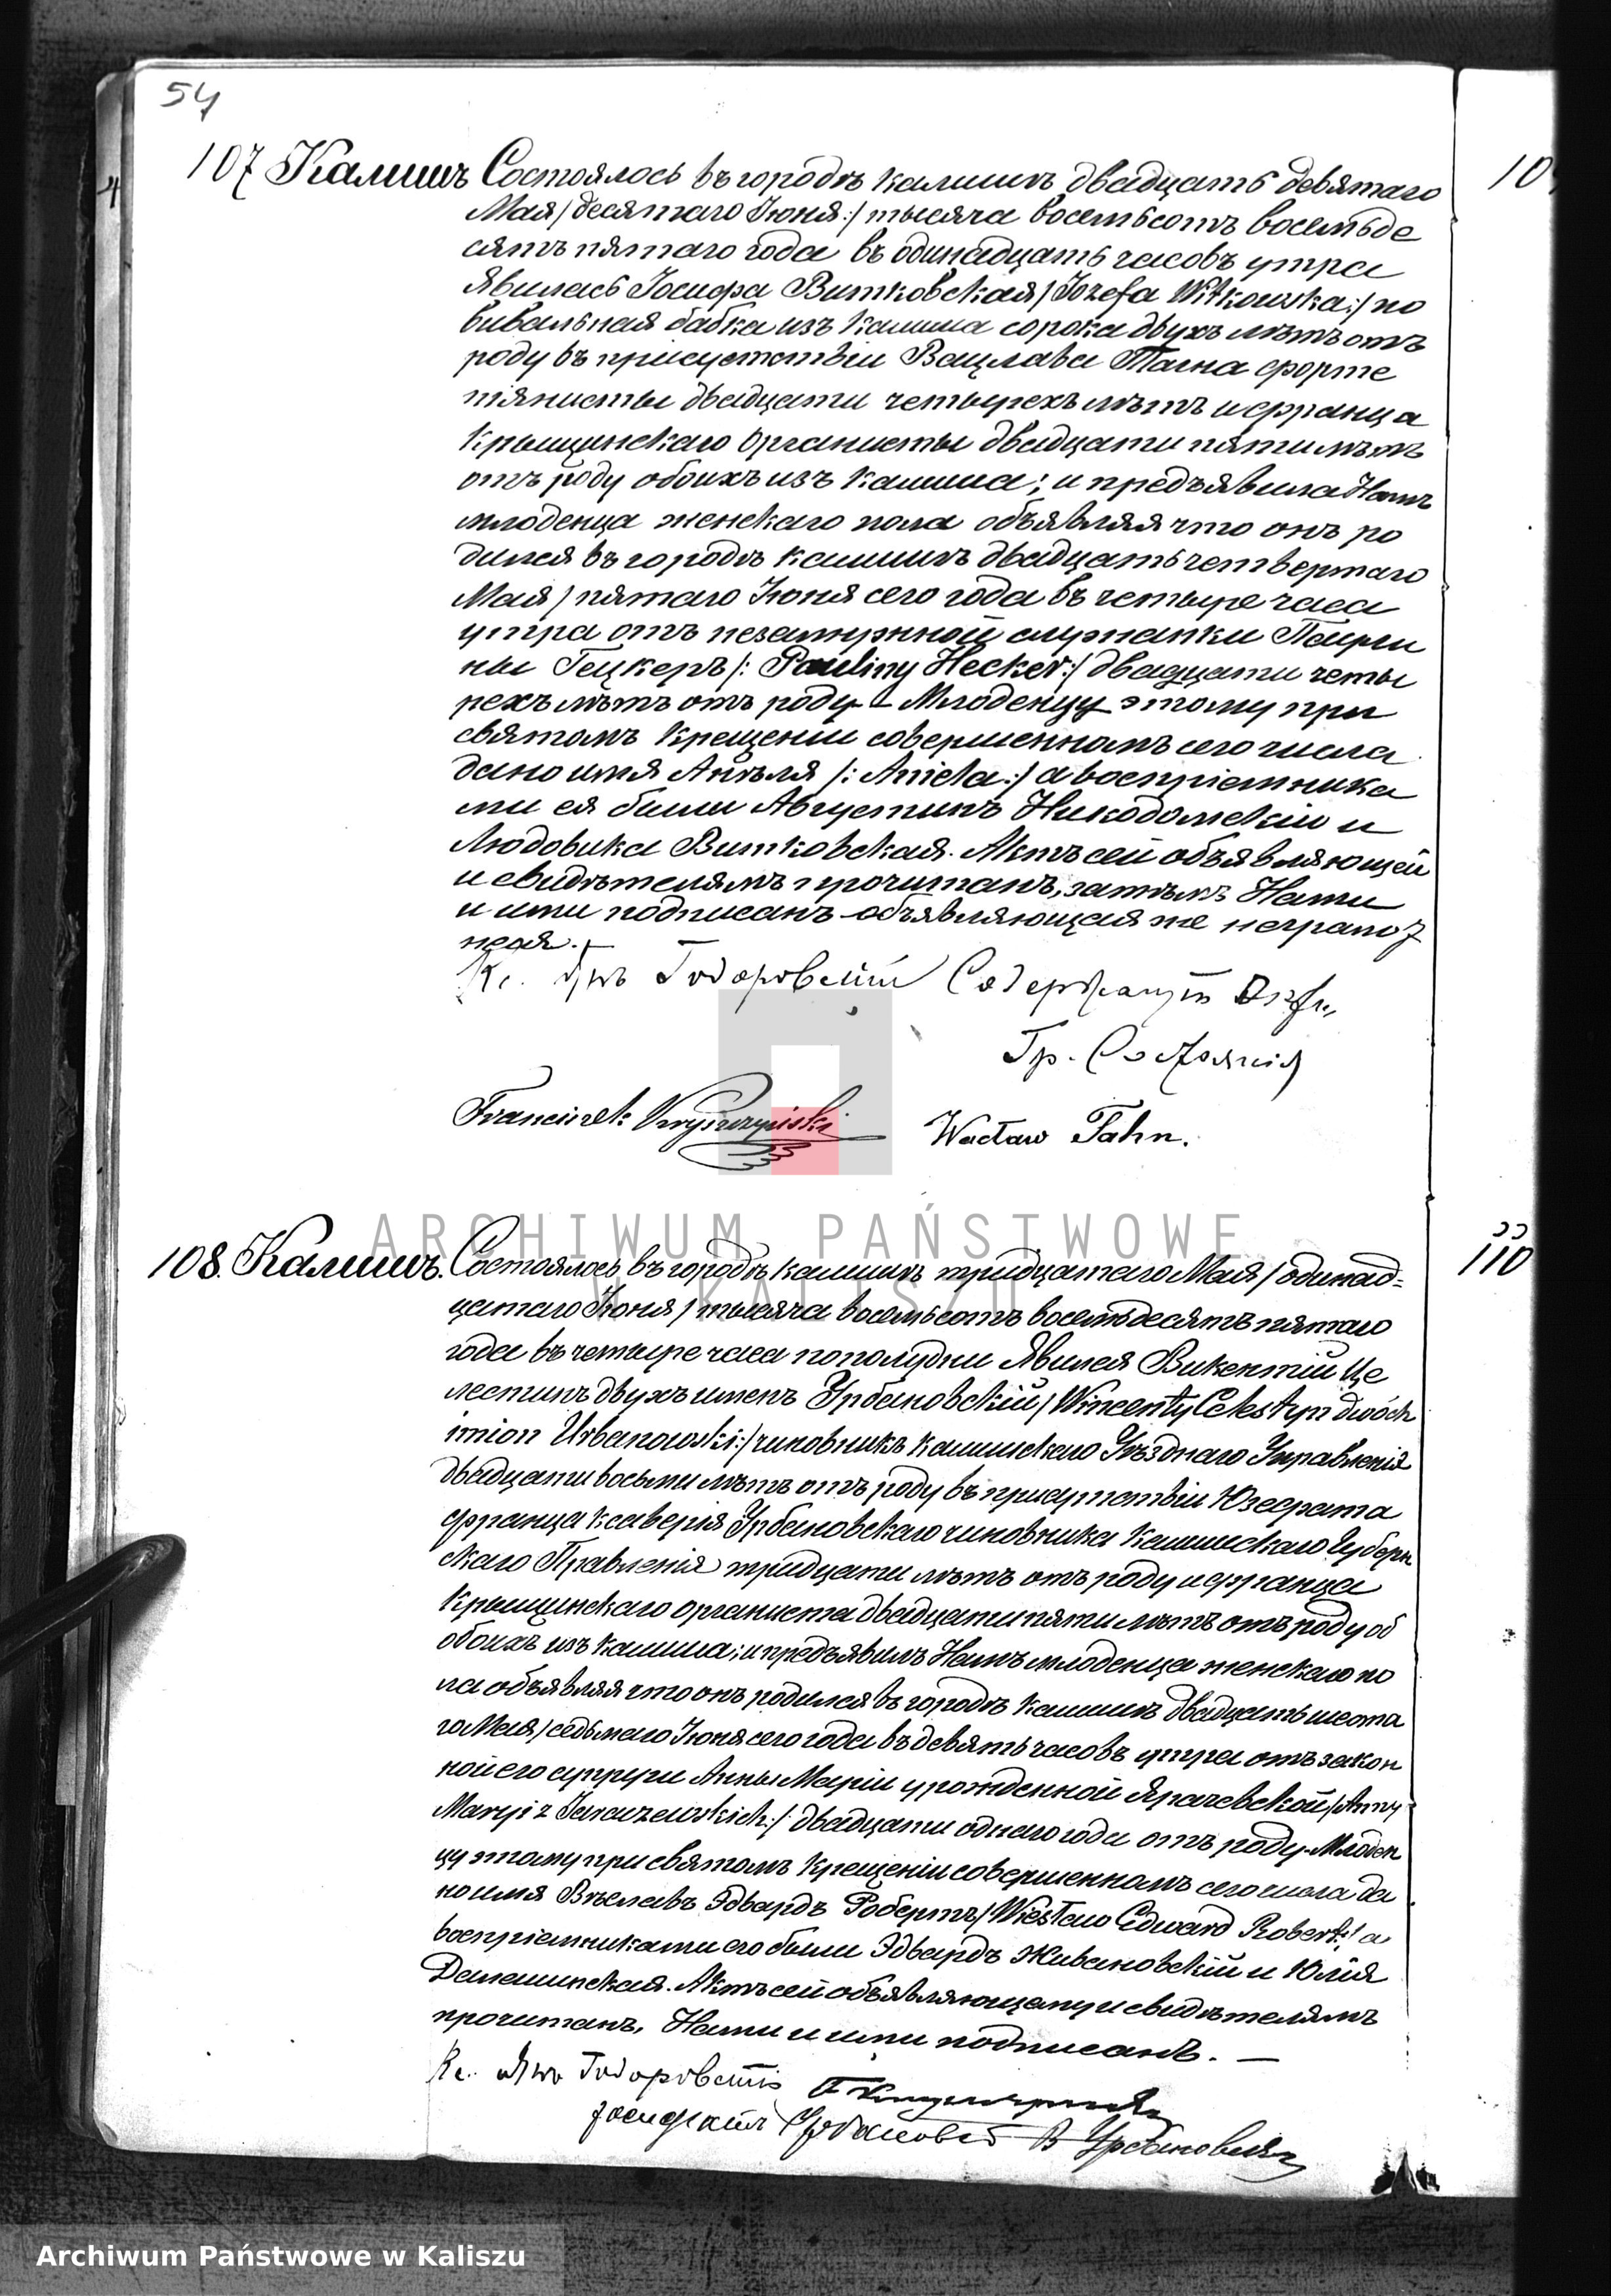 54
107 Калишъ Состоялось въ городѣ Калишѣ двадцать девятаго
Мая /десятаго Іюня:/ тысяча восемьсотъ восемьде
сятъ пятаго года въ одинадцать часовъ утра
Явилась Іосифа Витковская /Józefa Witkowska:/ по
вивальная бабка изъ Калиша сорока двухъ лѣтъ отъ
роду въ присутствіи Вацлава Тагна форте
піянисты двадцати четырехъ лѣтъ и Франца
Крыщинскаго Органисты двадцати пяти лѣтъ
отъ роду обоихъ изъ Калиша; и предъявила Намъ
младенца женскаго пола объявляя что онъ ро
дился въ городѣ Калишѣ двадцать четвертаго
Мая / пятаго Іюня сего года въ четыре часа
утра отъ незамужной служанки Паули
ны Гецкеръ /: Pauliny Hecker:/ двадцати четы
рехъ лѣтъ отъ роду - Младенцу этому при
святомъ Крещеніи совершенномъ сего числа
дано имя Анѣля /: Aniela:/ а воспріемника
ми ея были Августинъ Никодомскій и
Людовика Витковская. Актъ сей объявляющей
и свидѣтелямъ прочитанъ, затѣмъ Нами
и ими подписанъ объявляющая же неграмот
ная.
Кс. Янъ Годоровскій Содержащій Акты
Гр. Состоянія
Franciszek Kryszczyński Wacław Tahn.
108. Калишъ. Состоялось въ городѣ Калишѣ тридцатаго Мая / одинад=
цатаго Іюня / тысяча восемьсотъ восемьдесятъ пятаго
года въ четыре часа пополудни Явился Викентій Це
лестинъ двухъ именъ Урбановскій / Wincenty Celestyn dwóch
imion Urbanowski:/ чиновникъ Калишскаго Уѣзднаго Управленія
двадцати восьми лѣтъ отъ роду въ присутствіи Юзефата
Франца Ксаверія Урбановскаго чиновника Калишскаго Губерн
скаго Правленія тридцати лѣтъ отъ роду и Франца
Крыщинскаго органиста двадцати пяти лѣтъ отъ роду об
обоихъ изъ Калиша; и предъявилъ Намъ младенца женскаго по
ла объявляя что онъ родился въ городѣ Калишѣ двадцать шеста
го Мая / седьмаго Іюня сего года въ девять часовъ утра отъ закон
ной его супруги Анны Маріи урожденной Ярачевской /Anny
Maryi z Jaraczewskich:/ двадцати однаго года отъ роду. Младен
цу этому при святомъ Крещеніи совершенномъ сего числа да
но имя Вѣславъ Эдвардъ Робертъ / Wiesław Edward Robert:/ а
воспріемниками его были Эдвардъ Живановскій и Юлія
Данашинская. Актъ сей объявляющему и свидѣтелямъ
прочитанъ, Нами и ими подписанъ. —
Кс. Янъ Годоровскій
Урбановскій В Урбановскій
110
ARCHIWUM PAŃSTWOWE
W KALISZU
Archiwum Państwowe w Kaliszu